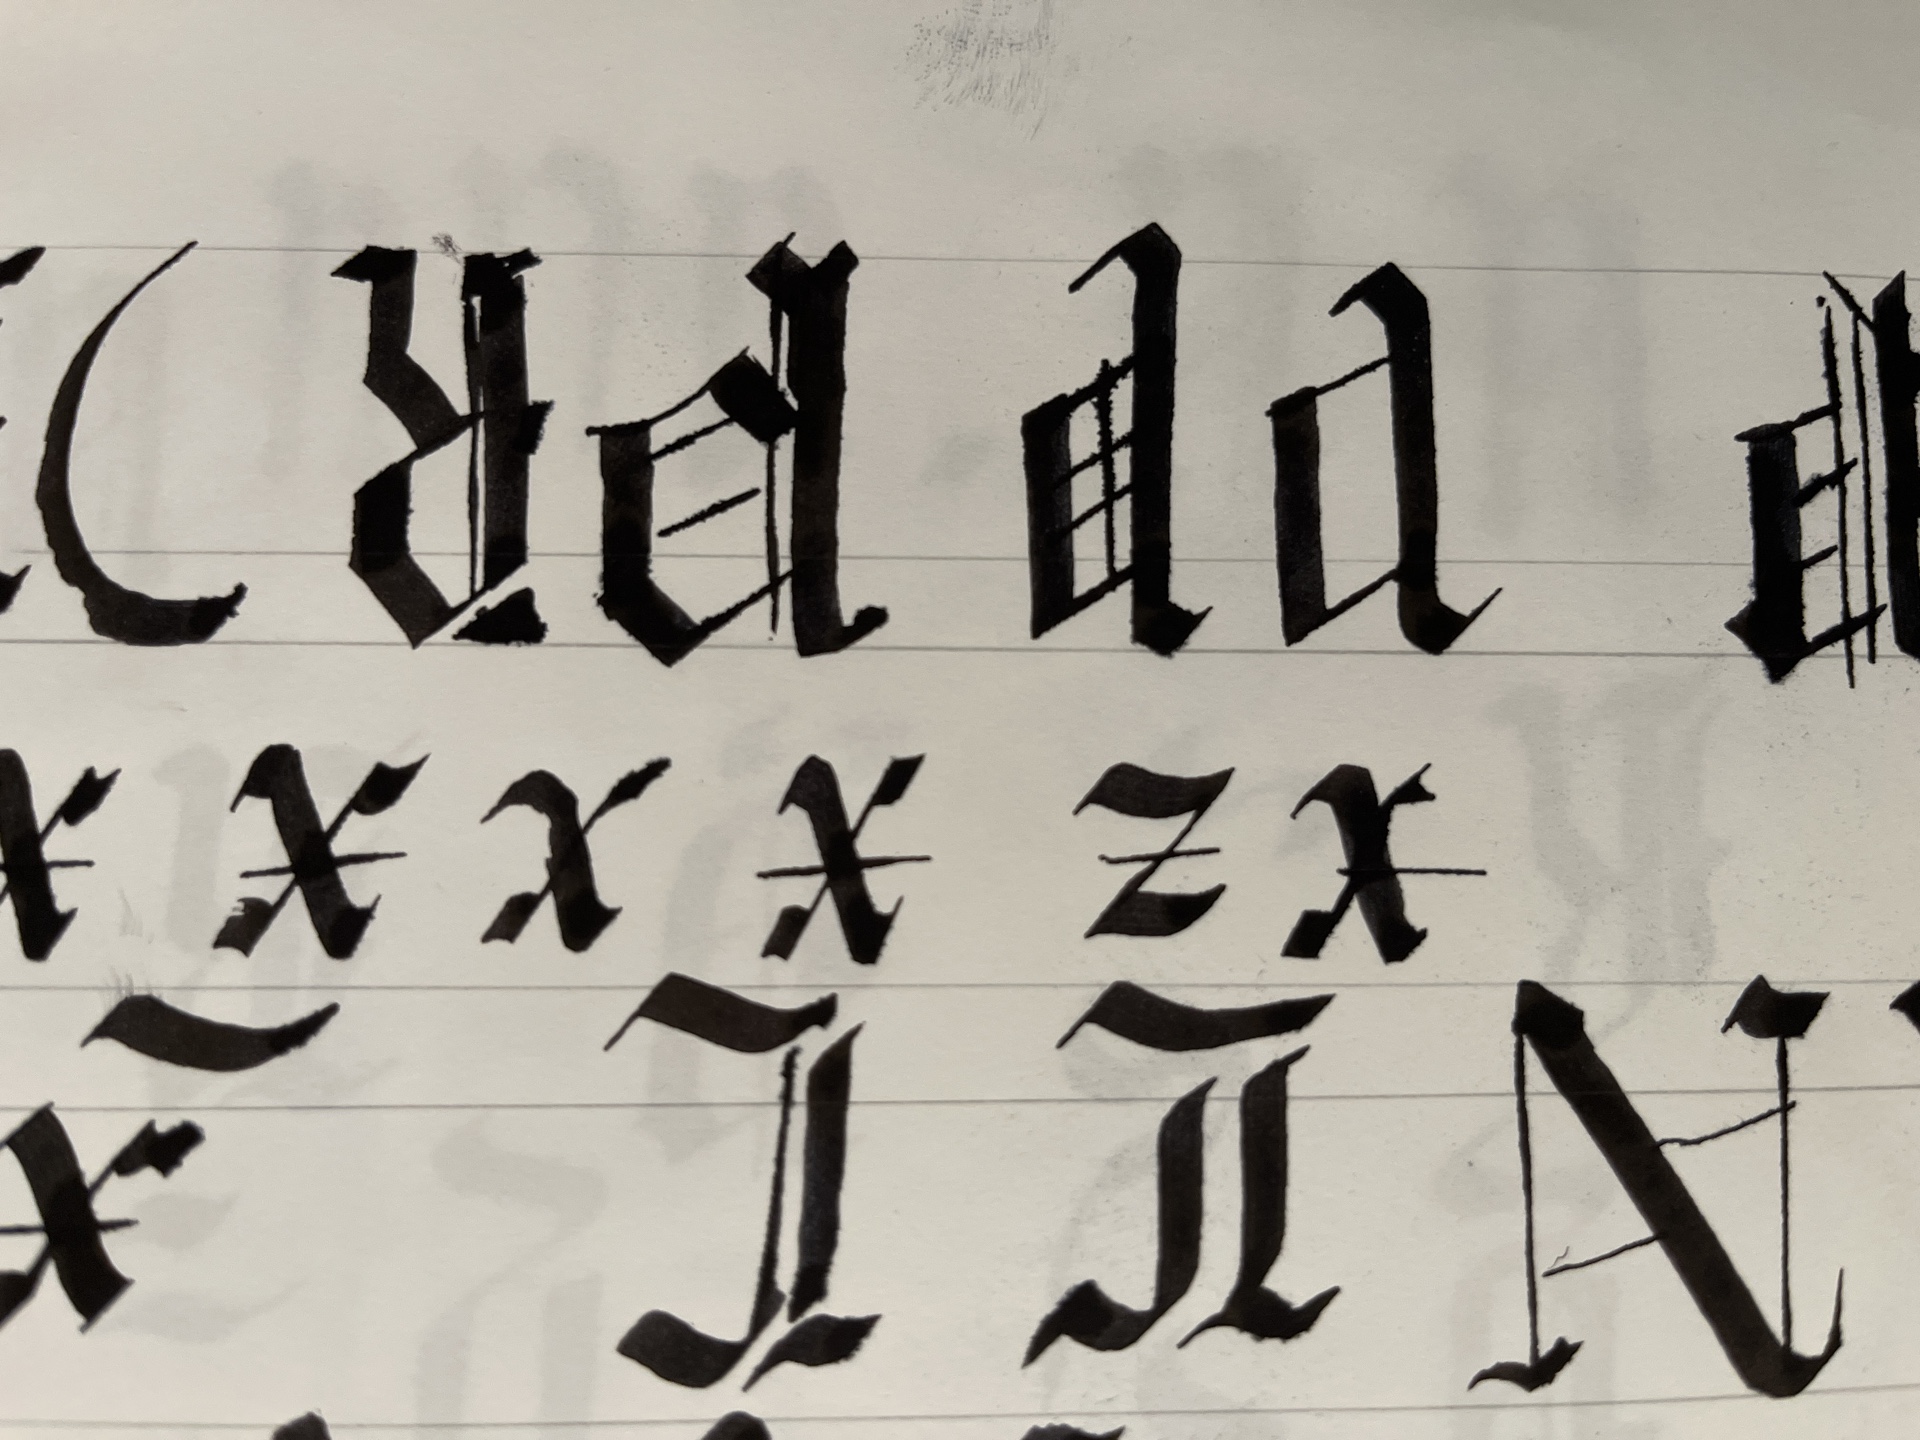 N L L
x z x x x x
P P P P R